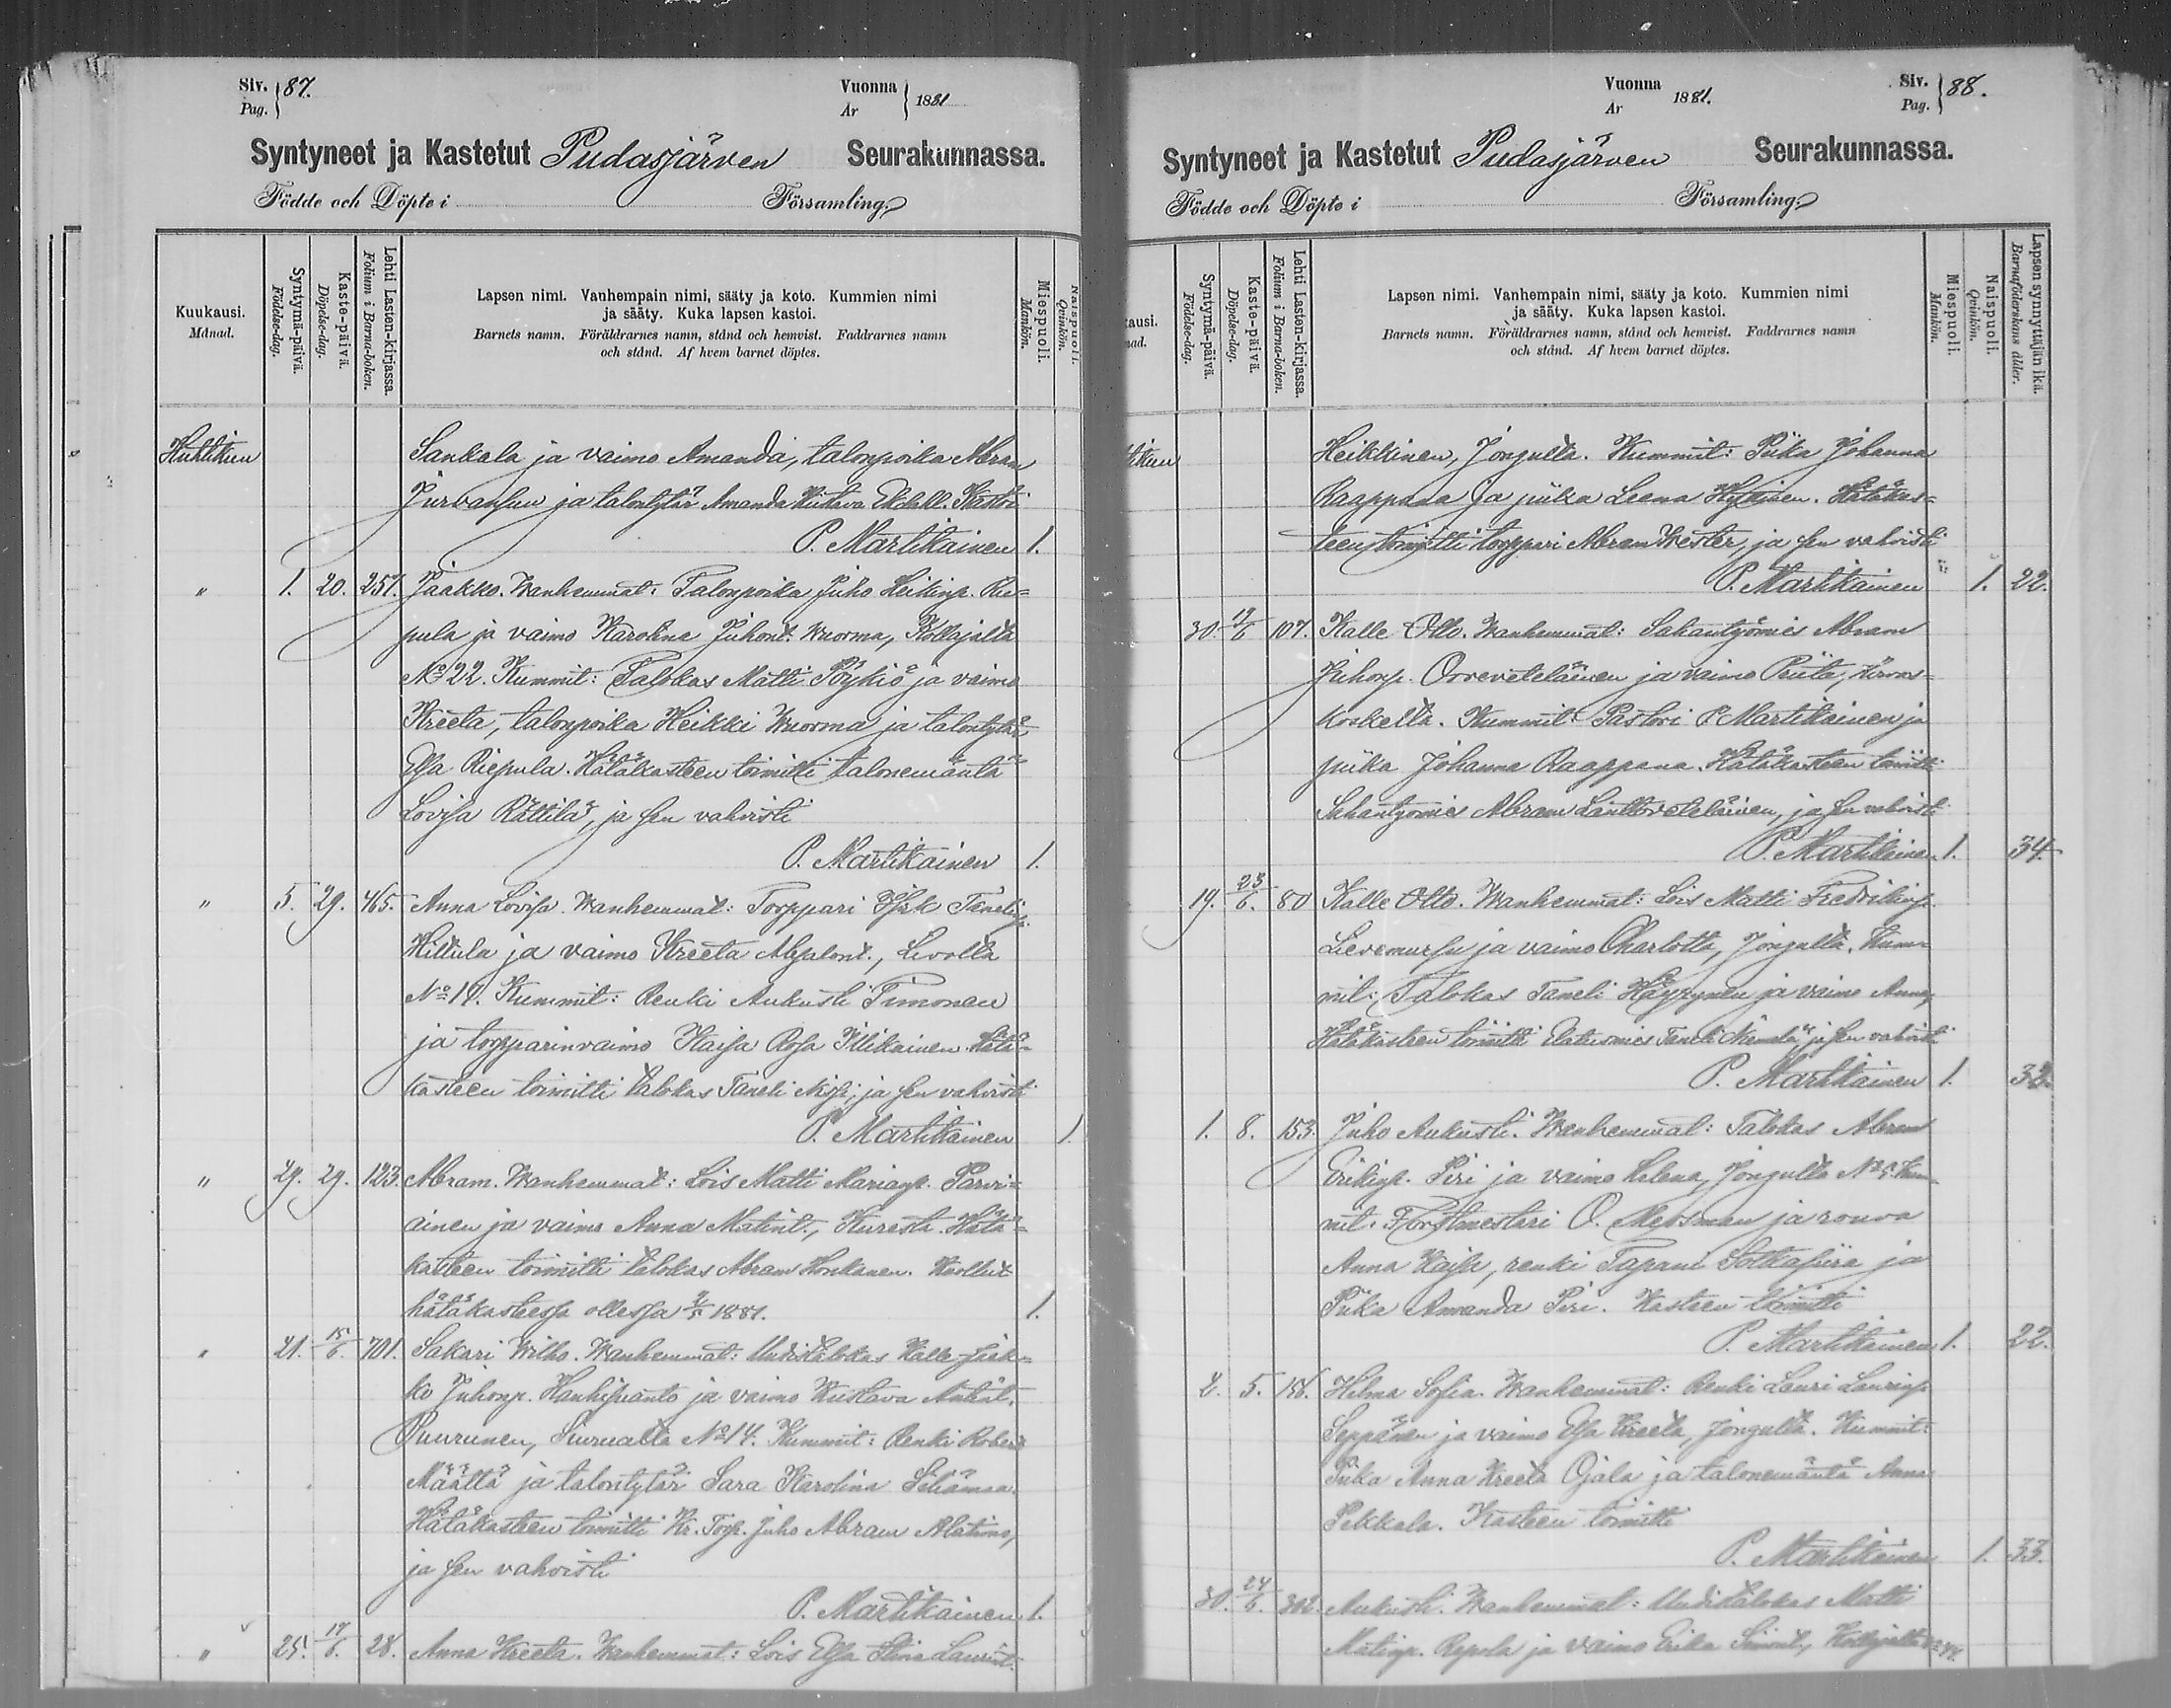 Siv. 87.
Pag.
Vuonna 1881
År
Syntyneet ja Kastetut Pudasjärven Seurakunnassa.
Födde och Döpte i Församling.
Kuukausi.
Månad.
Syntymä-päivä.
Födelse-dag.
Kaste-päivä.
Döpelse-dag.
Lehti Lasten-kirjassa.
Folium i Barna-boken.
Lapsen nimi. Vanhempain nimi, sääty ja koto. Kummien nimi
ja sääty. Kuka lapsen kastoi.
Barnets namn. Föräldrarnes namn, stånd och hemvist. Faddrarnes namn
och stånd. Af hvem barnet döptes.
Miespuoli.
Mankön.
Naispuoli.
Qvinkön.
Huhtikuu Sankala ja vaimo Amanda, talonpoika Abram
Jurvansuu ja talontytär Amanda Kustava Ekdahl. Kastoi
P. Martikainen 1.
" 1. 20. 257. Jaakko. Wanhemmat: Talonpoika Juho Heikinp. Rie=
pula ja vaimo Karolina Juhont. Wuorma, Kollajalta
No 22. Kummit: Talokas Matti Pöykiö ja vaimo
Kreeta, talonpoika Heikki Wuorma ja talontytär
Elsa Riepula. Hätäkasteen toimitti talonemäntä
Lovisa Rättilä, ja sen vahvisti
P. Martikainen 1.
" 5. 29. 465. Anna Lovisa. Wanhemmat: Torppari Isak Tanelinp.
Hiltula ja vaimo Kreeta Absalont., Livolta
No 19. Kummit: Renki Aukusti Timonen
ja torpparinvaimo Kaisa Rosa Illikainen. Hätä=
kasteen toimitti talokas Taneli Nissi, ja sen vahvisti
P. Martikainen 1.
" 29. 29. 123. Abram. Wanhemmat: Lois Matti Marianp. Parvi=
ainen ja vaimo Anna Matint., Kuresta. Hätä=
kasteen toimitti talokas Abram Honkanen. Kuollut
hätäkasteessa ollessa 1881. 1.
" 21. 15/6. 701. Sakari Wilho. Wanhemmat: Uudistalokas Kalle Jaak=
ko Juhonp. Hanhisuanto ja vaimo Kustava Antint.
Puurunen, Siurualta No 14. Kummit: Renki Robert
Määttä ja talontytär Sara Karolina Siliämaa.
Hätäkasteen toimitti Kr. Torp. Juho Abram Alatimo,
ja sen vahvisti
P. Martikainen 1.
" 25. 19/6. 28. Anna Kreeta. Wanhemmat: Lois Elsa Stiina Laurint.
Vuonna 1881.
År
Siv. 88.
Pag.
Syntyneet ja Kastetut Pudasjärven Seurakunnassa.
Födde och Döpte i Församling.
kausi.
nad.
Syntymä-päivä.
Födelse-dag.
Kaste-päivä.
Döpelse-dag.
Lehti Lasten-kirjassa.
Folium i Barna-boken.
Lapsen nimi. Vanhempain nimi, sääty ja koto. Kummien nimi
ja sääty. Kuka lapsen kastoi.
Barnets namn. Föräldrarnes namn, stånd och hemvist. Faddrarnes namn
och stånd. Af hvem barnet döptes.
Miespuoli.
Mankön.
Naispuoli.
Qvinkön.
Lapsen synnyttäjän ikä.
Barnaföderskans ålder.
tikuu Heikkinen, Jongulta. Kummit: Piika Johanna
Raappana ja piika Leena Hyttinen. Hätäkas=
teen toimitti torppari Abram Wester, ja sen vahvisti
P. Martikainen 1. 22.
30. 19/6 107. Kalle Otto. Wanhemmat: Sahantyömies Abram
Juhonp. Oorveteläinen ja vaimo Riita,
koskelta. Kummit: Pastori P. Martikainen ja
piika Johanna Raappana. Hätäkasteen toimitti
Sahantyömies Abram Lanttoveteläinen, ja sen vahvisti
P. Martikainen 1. 34.
19. 23/6. 80 Kalle Otto. Wanhemmat: Lois Matti Fredrikinp.
Lievemursu ja vaimo Charlotta, Jongulta. Kum=
mit: Talokas Taneli Häyrynen ja vaimo Anna,
Hätäkasteen toimitti Elatusmies Taneli Niemelä, ja sen vahvisti
P. Martikainen 1. 32.
1. 8. 153. Juho Aukusti. Wanhemmat: Talokas Abram
Erikinp. Piri ja vaimo Helena, Jongulta No 5. Kum=
mit: Forstmestari O. Metsman ja rouva
Anna Kaisa, renki Tapani Sotkasiira ja
Piika Amanda Piri. Kasteen toimitti
P. Martikainen 1. 22.
2. 5. 156. Hilma Sofia. Wanhemmat: Renki Lauri Laurinp.
Seppänen ja vaimo Elsa Kreeta, Jongulta. Kummit:
Piika Anna Kreeta Ojala ja talonemäntä Anna
Pekkala. Kasteen toimitti
P. Martikainen 1. 33.
30. 24/6. 302. Aukusti. Wanhemmat: Uudistalokas Matti
Matinp. Repola ja vaimo Erika Simont., Kollajalta No 44.